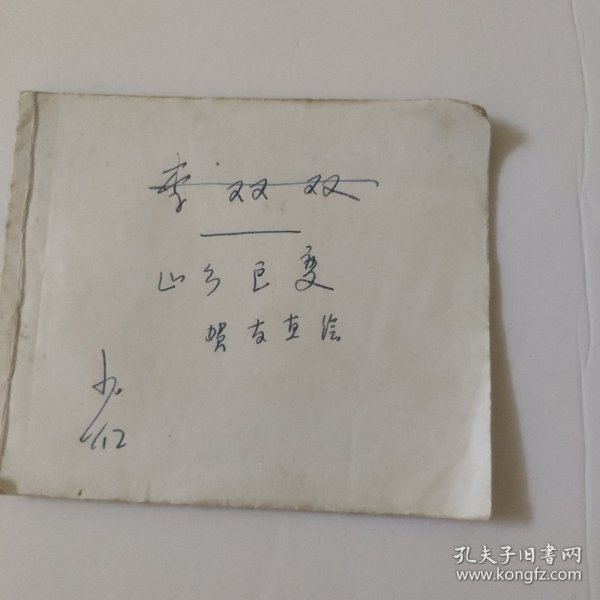 李双双
山乡巨变
贺友直绘
孔夫子旧書网
www.kongfz.com